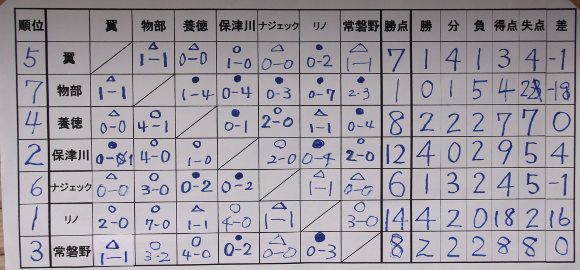 順位 翼 物部 養徳 保津川 ナジェック リノ 常磐野 勝点 勝 分 負 得点 失点 差
5 翼 △ 1-1 △ 0-0 ○ 1-0 △ 0-0 ● 0-2 △ 1-1 7 1 4 1 3 4 -1
7 物部 △ 1-1 ● 1-4 ● 0-4 ● 0-3 ● 0-7 ● 2-3 1 0 1 5 4 -18
4 養徳 △ 0-0 ○ 4-1 ● 0-1 ○ 2-0 △ 1-1 ● 0-4 8 2 2 2 7 7 0
2 保津川 ● 0-1 ○ 4-0 ○ 1-0 ○ 2-0 ● 0-4 ○ 2-0 12 4 0 2 9 5 4
6 ナジェック △ 0-0 ○ 3-0 ● 0-2 ● 0-2 △ 1-1 △ 0-0 6 1 3 2 4 5 -1
1 リノ ○ 2-0 ○ 7-0 △ 1-1 ○ 4-0 △ 1-1 ○ 3-0 14 4 2 0 18 2 16
3 常磐野 △ 1-1 ○ 3-2 ○ 4-0 ● 0-2 △ 0-0 ● 0-3 8 2 2 2 8 8 0